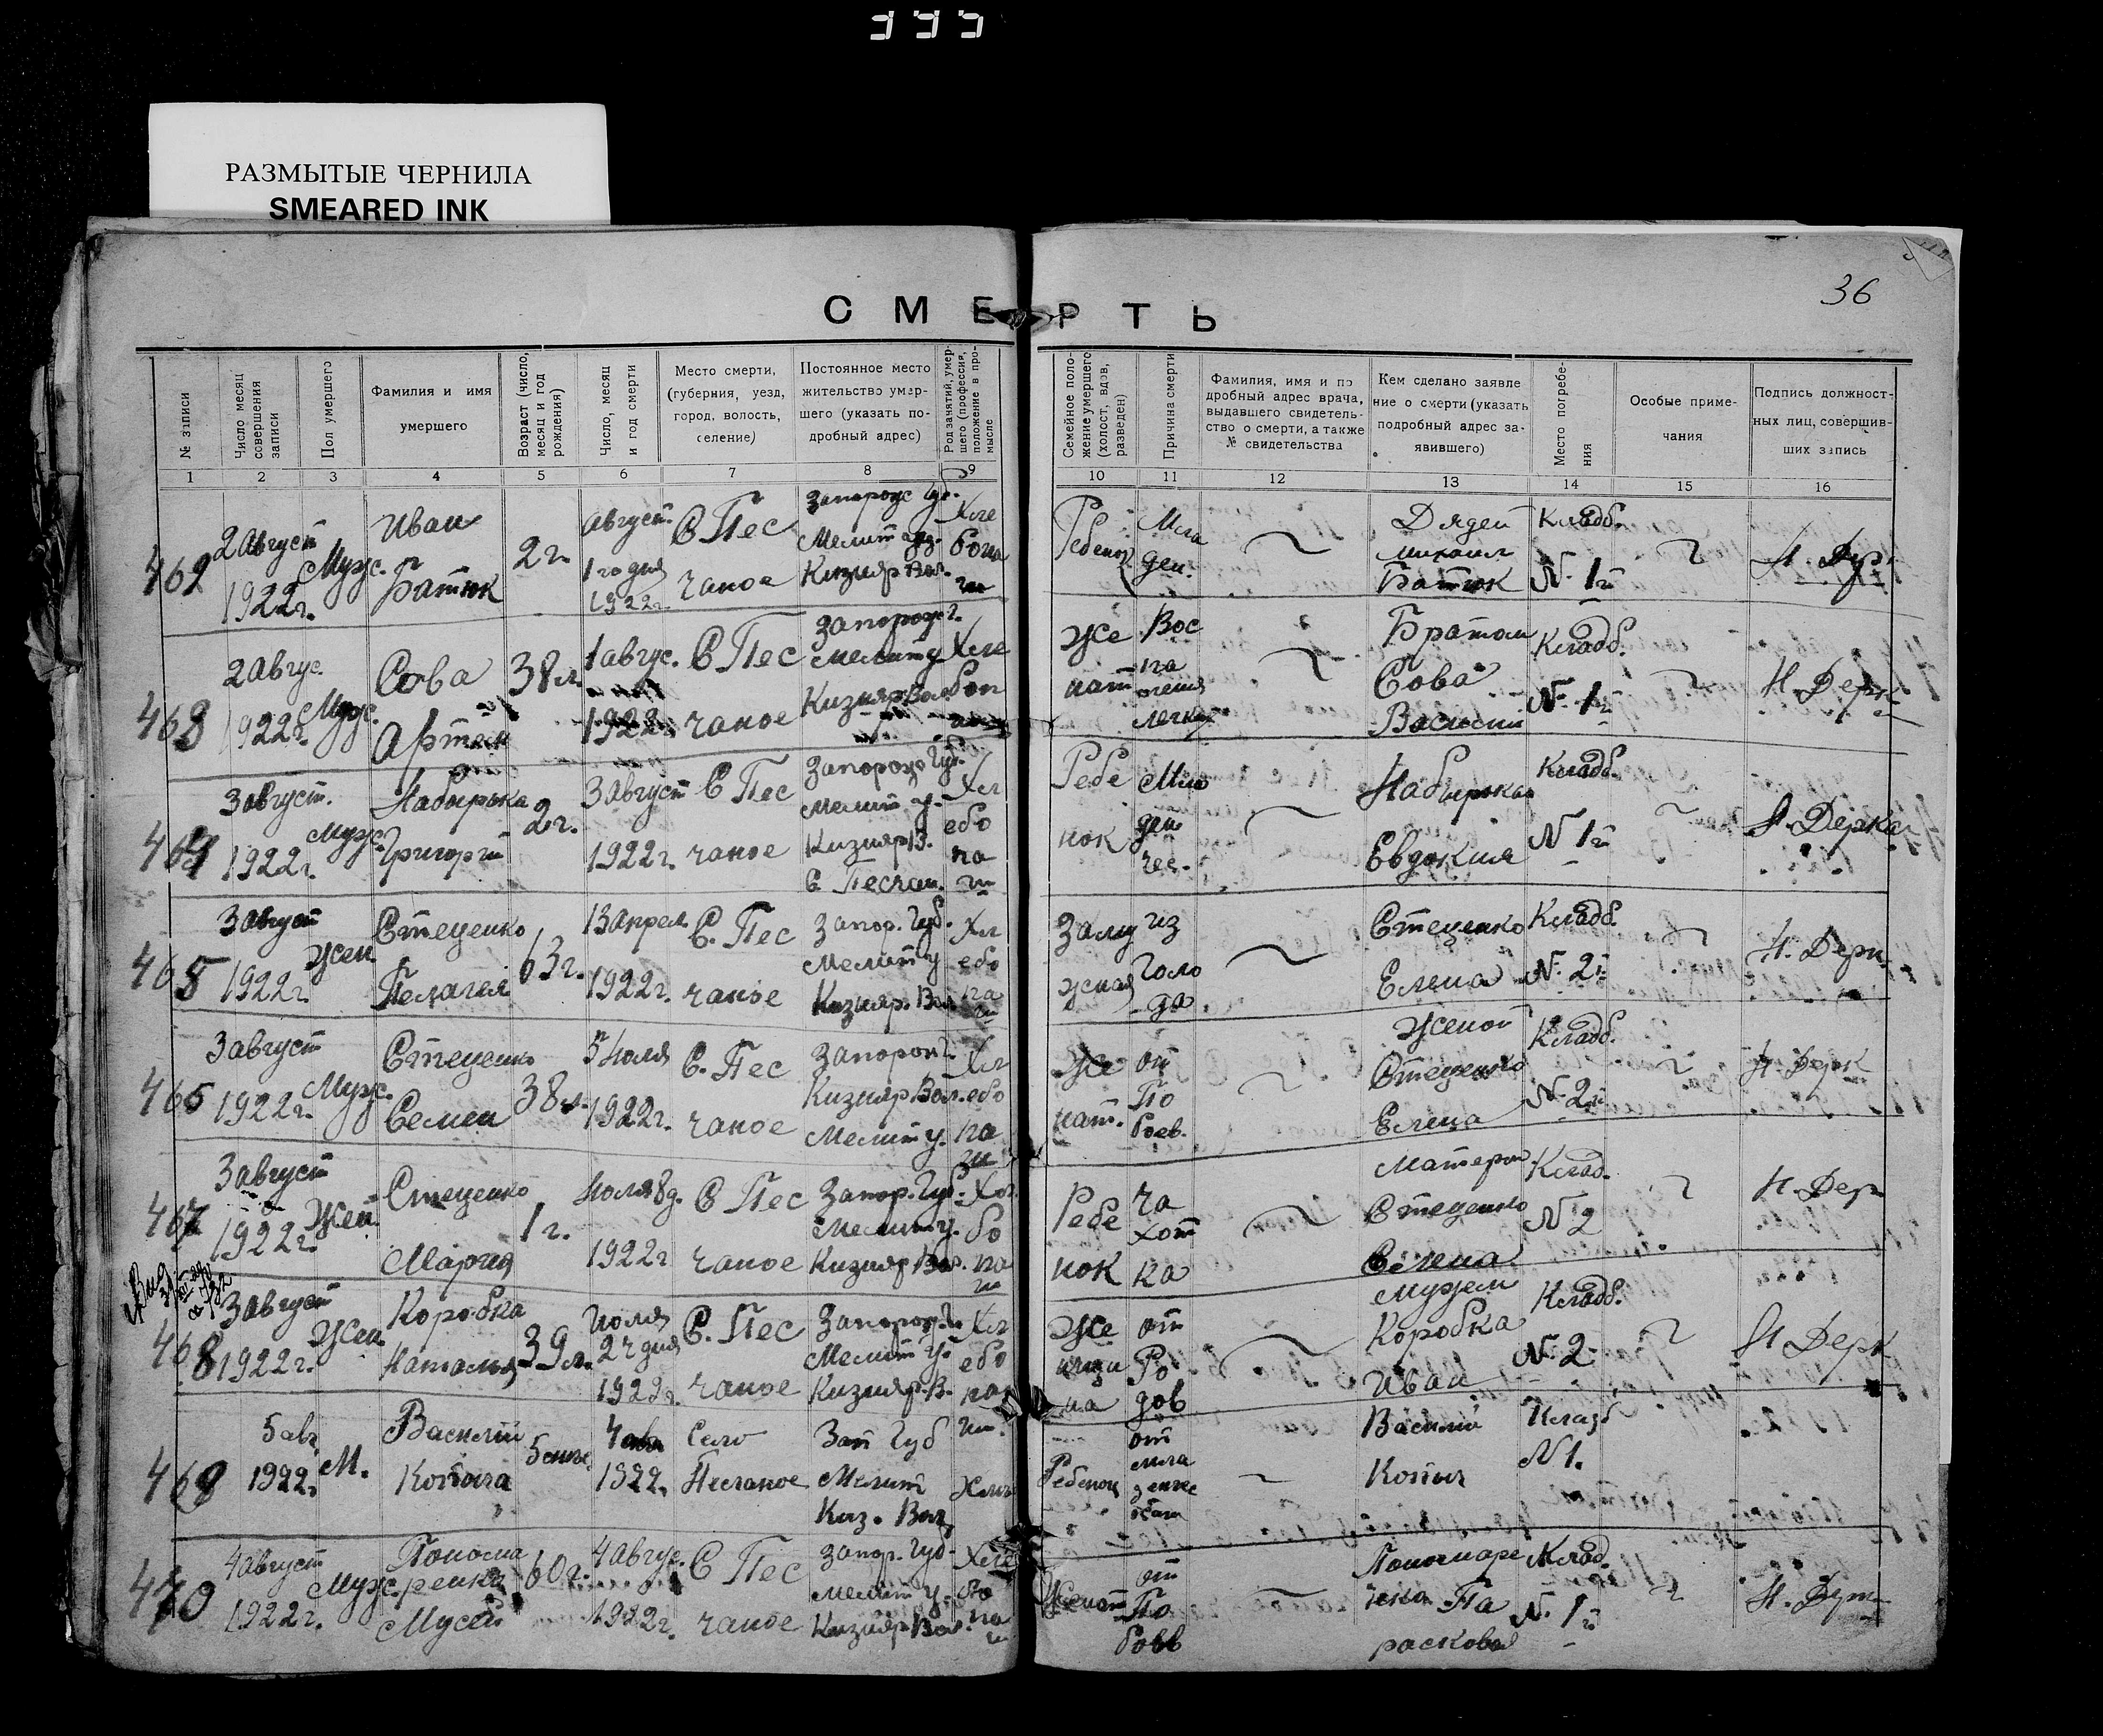 РАЗМЫТЫЕ ЧЕРНИЛА
SMEARED INK
36
СМЕРТЬ
№ записи
Число месяц совершения записи
Пол умершего
Фамилия и имя умершего
Возраст (число, месяц и год рождения)
Число, месяц и год смерти
Место смерти, (губерния, уезд, город, волость, селение)
Постоянное место жительство умершего (указать подробный адрес)
Род занятий, умершего (профессия, положение в промысле
Семейное положение умершего (холост, вдов, разведен)
Причина смерти
Фамилия, имя и подробный адрес врача, выдавшего свидетельство о смерти, а также № свидетельства
Кем сделано заявление о смерти (указать подробный адрес заявившего)
Место погребения
Особые примечания
Подпись должностных лиц, совершивших запись
1 2 3 4 5 6 7 8 9 10 11 12 13 14 15 16
462 2 Август 1922г. Муж. Иван Батюк 2г. Август 1го дня 1922г. С Песчаное Запорож Губ. Мелит Кизияр Вол. Хлебопаш Ребенок Младен. Дядей Михаил Батюк Кладб. N 1й
463 2 Авгус. 1922г. Муж. Сова Артем 38л. 1 Авгус. 1922г. С Песчаное Запорож г. Мелит у Кизияр Вол Хлебоп Женат Воспаления легких Братом Сова Василий Кладб. N 1й Н. Дерк
464 3 Август. 1922г. Муж. Набирька Григорий 2г. 3 Август 1922г. С Песчаное Запорож Губ. Мелит у. Кизияр В. С. Песчан. Хлебопаш Ребенок Младенчес. Набирька Евдокия Кладб. N 1й
465 3 Август 1922г. Жен Стеценко Пелагея 63г. 13 Апрел. 1922г. С. Песчаное Запор. Губ. Мелит у Кизияр. Вол Хлебопаш Замужная из Голода Стеценко Елена Кладб. N 2й Н. Дерк.
466 3 Август 1922г. Муж. Стеценко Семен 38л. 5 Июля 1922г. С. Песчаное Запорож г. Кизияр Вол. Мелит у. Хлебопаш Женат. от Побоев. Женой Стеценко Елена Кладб. N 2й Н. Дерк
467 3 Август 1922г. Жен. Стеценко Мария 1г. Июля 8д. 1922г С Песчаное Запор. Губ. Мелит у. Кизияр Вол. Ребенок Чахотка Матерью Стеценко Елена Клад. N 2 Н. Дер
468 3 Август 1922г. Жен Коробка Наталья 39л. Июля 24 дня 1922г. С. Песчаное Запорож. г. Мелит у. Кизияр. В. Хлебопаш. от Родов Мужем Коробка Иван Кладб. N 2 Н Дерк
469 5 авг 1922г М. Василий 4 авг 1922г Село Песчаное Зап Губ Мелит Киз. Вол Ребенок от Василий N 1.
470 4 Август 1922г. Муж. Пономаренко Мусей 60г. 4 Авгус. 1922г. С Песчаное Запор. Губ. Мелит у. Кизияр Вол. Хлебопаш Женат от Побоев Пономаренко Парасковья Клад. N 1й